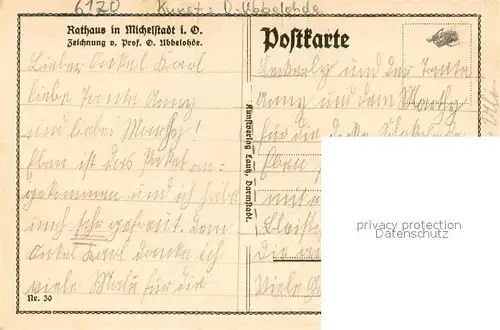 6120 Kunst: O. Ubbelohde
Rathaus in Michelstadt i. O.
Zeichnung v. Prof. O. Ubbelohde.
Lieber Onkel Karl
liebe Tante Anny
und lieber
Eben ist das Paket an-
gekommen und ich habe
mich sehr gefreut. Dem
Onkel Karl danke ich
viele Male für die
Nr. 30
Kunstverlag Lautz, Darmstadt.
Postkarte
und der Tante
Anny und dem
für die
Eben
mit
Bleisti
Die
Viele
privacy protection
Datenschutz